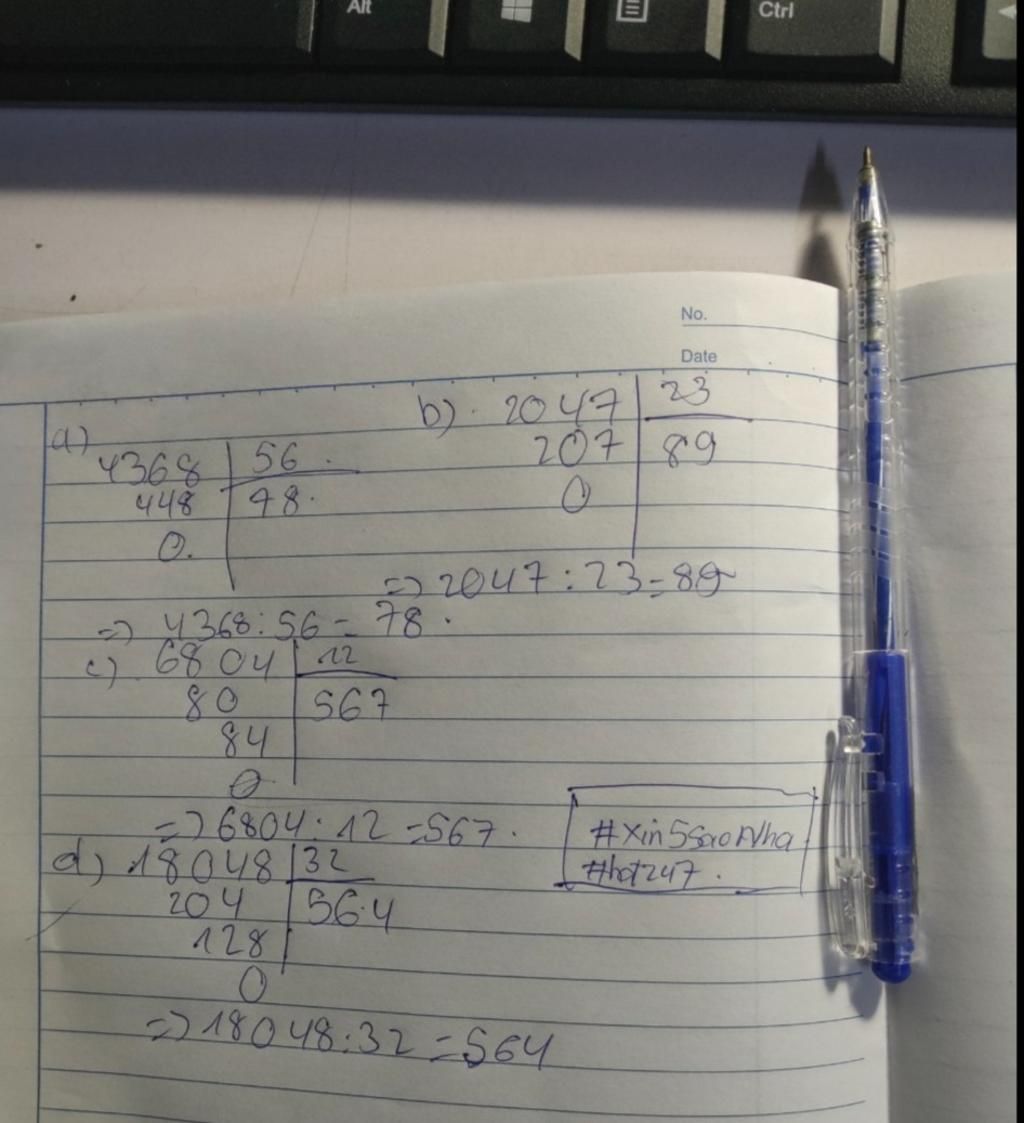 Alt
Ctrl
No.
Date
a)
4368 | 56.
448 | 78.
0.
=> 4368:56 = 78.
b). 2047 | 23
207 | 89
0
=> 2047:23=89
c). 6804 | 12
80 | 567
84
0
=> 6804:12=567.
#xin5saoNha
#hot247.
d) 18048 | 32
204 | 56.4
128
0
=> 18048:32=564